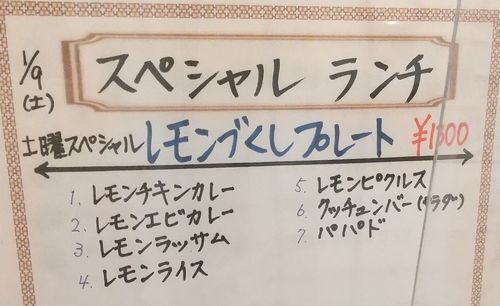 1/9
(土)
スペシャル ランチ
土曜スペシャル レモンづくしプレート ¥1300
1. レモンチキンカレー
2. レモンエビカレー
3. レモンラッサム
4. レモンライス
5. レモンピクルス
6. クッチュンバー(サラダー)
7. パパド